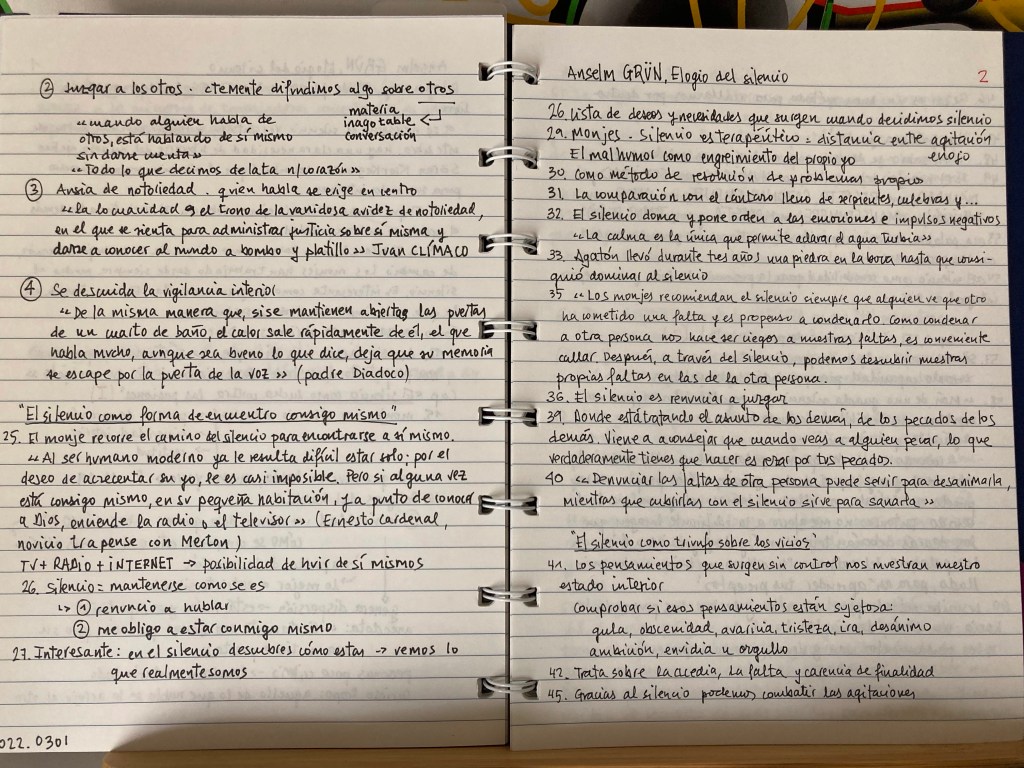 ② Juzgar a los otros. ctemente difundimos algo sobre otros
materia
inagotable
conversación
"cuando alguien habla de
otros, está hablando de sí mismo
sin darse cuenta»
"Todo lo que decimos delata n/corazón»
③ Ansia de notoriedad. quien habla se erige en centro
«La locuacidad es el trono de la vanidosa avidez de notoriedad,
en el que se sienta para administrar justicia sobre sí misma y
darse a conocer al mundo a bombo y platillo» Juan CLÍMACO
④ Se descuida la vigilancia interior
"De la misma manera que, si se mantienen abiertas las puertas
de un cuarto de baño, el calor sale rápidamente de él, el que
habla mucho, aunque sea bueno lo que dice, deja que su memoria
se escape por la puerta de la voz» (padre Diadoco)
"El silencio como forma de encuentro consigo mismo"
25. El monje recorre el camino del silencio para encontrarse a sí mismo.
«Al ser humano moderno ya le resulta difícil estar solo: por el
deseo de acrecentar su yo, le es casi imposible. Pero si alguna vez
está consigo mismo, en su pequeña habitación, y a punto de conocer
a Dios, enciende la radio o el televisor» (Ernesto Cardenal,
novicio trapense con Merton)
TV + RADIO + INTERNET → posibilidad de huir de sí mismos
26. Silencio = mantenerse como se es
↳ ① renuncio a hablar
② me obligo a estar conmigo mismo
27. Interesante: en el silencio descubres cómo estas → vemos lo
que realmente somos
022.0301
Anselm GRÜN, Elogio del silencio
2
26. Lista de deseos y necesidades que surgen cuando decidimos silencio
29. Monjes. Silencio es terapéutico = distancia entre agitación
enojo
El mal humor como engreimiento del propio yo
30. Como método de resolución de problemas propios
31. La comparación con el cántaro lleno de serpientes, culebras y...
32. El silencio doma y pone orden a las emociones e impulsos negativos
"La calma es la única que permite aclarar el agua turbia»
33. Agatón llevó durante tres años una piedra en la boca hasta que consi-
guió dominar al silencio
35 «Los monjes recomiendan el silencio siempre que alguien ve que otro
ha cometido una falta y es propenso a condenarlo. Como condenar
a otra persona nos hace ser ciegos a nuestras faltas, es conveniente
callar. Después, a través del silencio, podemos descubrir nuestras
propias faltas en las de la otra persona.
36. El silencio es renunciar a juzgar
39. Donde está tratando el asunto de los demás, de los pecados de los
demás. Viene a aconsejar que cuando veas a alguien pecar, lo que
verdaderamente tienes que hacer es rezar por tus pecados.
40 «Denunciar las faltas de otra persona puede servir para desanimarla,
mientras que cubrirlas con el silencio sirve para sanarla»
"El silencio como triunfo sobre los vicios"
41. Los pensamientos que surgen sin control nos muestran nuestro
estado interior
Comprobar si esos pensamientos están sujetos a:
gula, obscenidad, avaricia, tristeza, ira, desánimo
ambición, envidia u orgullo
42. Trata sobre la acedia, la falta y carencia de finalidad
45. Gracias al silencio podemos combatir las agitaciones